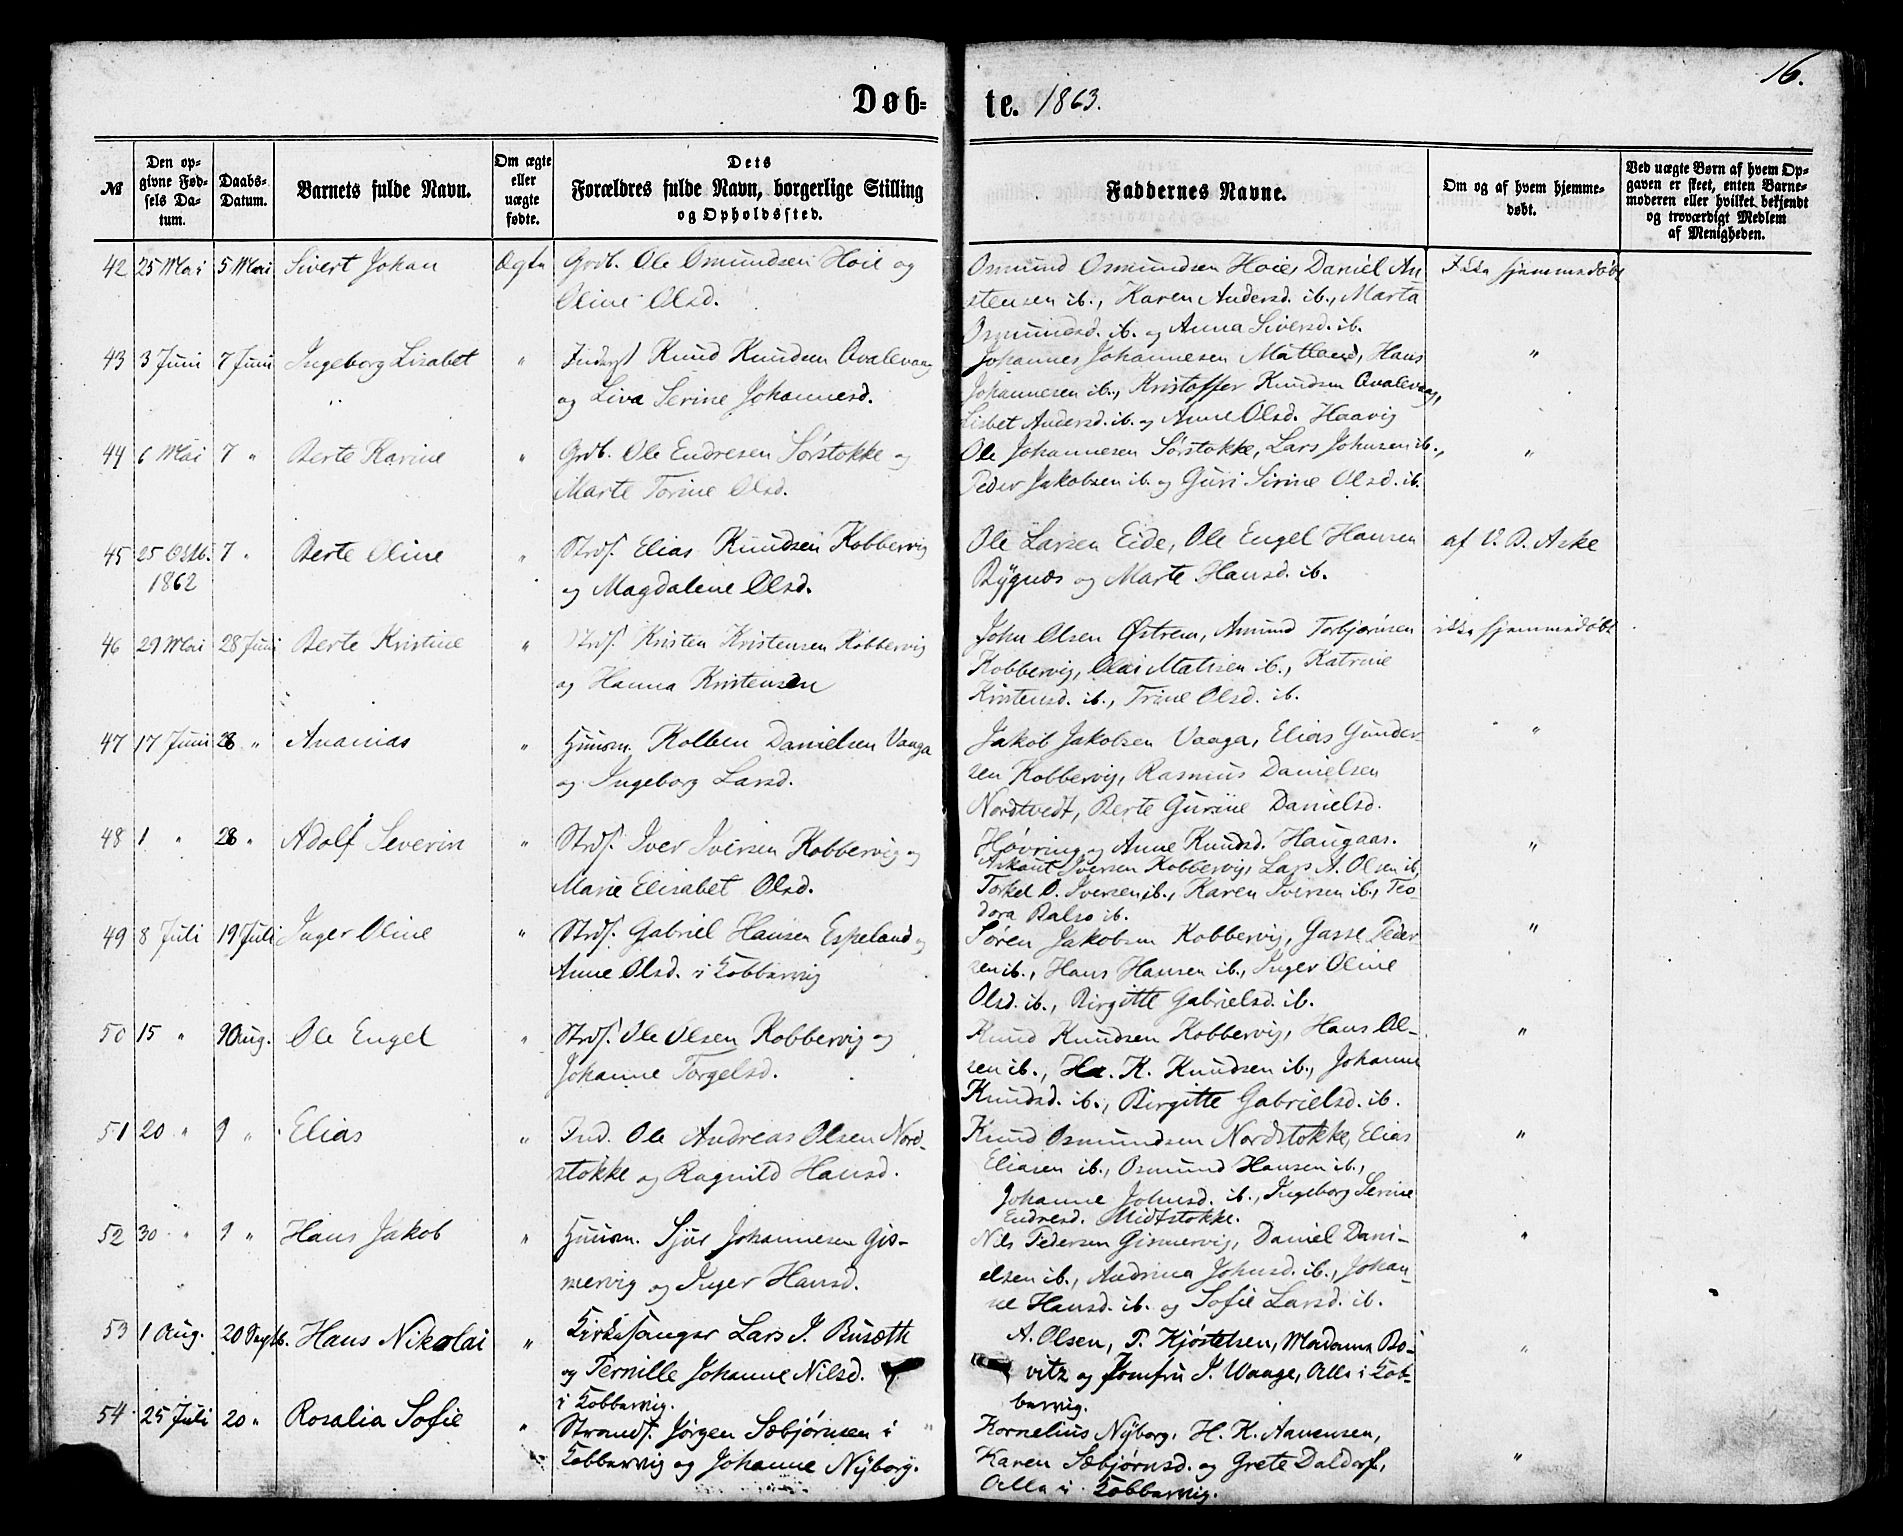 16.
Døb- te. 1863.
№ Den opgivne Fødsels Datum. Daabs-Datum. Barnets fulde Navn. Om ægte eller uægte fødte. Dets Forældres fulde Navn, borgerlige Stilling og Opholdssted. Faddernes Navne. Om og af hvem hjemmedøbt. Ved uægte Børn af hvem Opgaven er skeet, enten Barnemoderen eller hvilket bekjendt og troværdigt Medlem af Menigheden.
42 25 Mai 5 Mai Sivert Johan Ægte Grdb. Ole Osmundsen Hoie og Osmund Osmundsen Hoie, Daniel An- Ikke hjemmedøbt
Oline Olsd. stensen ib., Karen Andersd. ib., Marta
Osmundsd. ib. og Anna Siversd. ib.
43 3 Juni 7 Juni Ingeborg Lisabet " Inderst Knud Knudsen Qvalevaag Johannes Johannesen Matland, Hans "
og Liva Serine Johannesd. Johannesen ib., Kristoffer Knudsen Qvalevaag,
Lisbet Andersd. ib. og Anne Olsd. Haavig
44 6 Mai 7 " Berte Karine " Grdb. Ole Endresen Sørstokke og Ole Johannesen Sørstokke, Lars Johnsen ib., "
Marte Torine Olsd. Peder Jakobsen ib. og Guri Sirine Olsd. ib.
45 25 Oktb. 7 " Berte Oline " Strds. Elias Knudsen Kobbervig Ole Larsen Eide, Ole Engel Hansen af V. D. Aske
1862 og Magdalene Olsd. Bygnæs og Marte Hansd. ib.
46 29 Mai 28 Juni Berte Kristine " Strds. Kristen Kristensen Kobbervig John Olsen Østrem, Amund Torbjørnsen ikke hjemmedøbt
og Hanna Kristensen Kobbervig, Olai Matisen ib., Katrine
Kristensd. ib., Trine Olsd. ib.
47 17 Juni 28 " Ananias " Huusm. Kolben Danielsen Vaaga Jakob Jakobsen Vaaga, Elias Gunder- "
og Ingeborg Larsd. sen Kobbervig, Rasmus Danielsen
Nordtvedt, Berte Gurine Danielsd.
48 1 " 28 " Adolf Severin " Strds. Iver Iversen Kobbervig og Høvring og Anne Knudsd. Haugaas. "
Marie Elisabet Olsd. Askaut Iversen Kobbervig, Lars A. Olsen ib,
Torkel O. Iversen ib., Karen Iversen ib., Teo-
dora Balso ib.
49 8 Juli 19 Juli Inger Oline " Strds. Gabriel Hansen Espeland og Søren Jakobsen Kobbervig, Gasse Peder- "
Anne Olsd. i Kobbervig sen ib., Hans Hansen ib., Inger Oline
Olsd. ib., Birgitte Gabrielsd. ib.
50 15 " 9 Aug. Ole Engel " Strds. Ole Olsen Kobbervig og Knud Knudsen Kobbervig, Hans Ol- "
Johanne Torgelsd. sen ib., Ha. K. Knudsen ib., Johanne
Knudsd. ib., Birgitte Gabrielsd. ib.
51 20 " 9 " Elias " Ind. Ole Andreas Olsen Nord- Knud Osmundsen Nordstokke, Elias "
stokke og Ragnild Hansd. Eliasen ib., Osmund Hansen ib.,
Johanne Johnsd. ib., Ingeborg Serine
Endresd. Midtstokke.
52 30 " 9 " Hans Jakob " Huusm. Sjur Johannesen Gis- Nils Pedersen Gismervig, Daniel Dani- "
mervig og Inger Hansd. elsen ib., Andrina Johnsd. ib., Johan-
ne Hansd. ib. og Sofie Larsd. ib.
53 1 Aug. 20 Septb. Hans Nikolai " Kirkesanger Lars J. Busæth A. Olsen, P. Kjøstelsen, Madame Bo- "
og Pernille Johanne Nilsd. vitz og Jomfru J. Waage, Alle i Kob-
i Kobbervig. bervig.
54 25 Juli 20 " Rosalia Sofie " Strands. Jørgen Sæbjørnsen i Kornelius Nyborg, H. K. Aanensen, "
Kobbervig og Johanne Nyborg. Karen Sæbjørnsd. og Grete Daldorf,
Alle i Kobbervig.